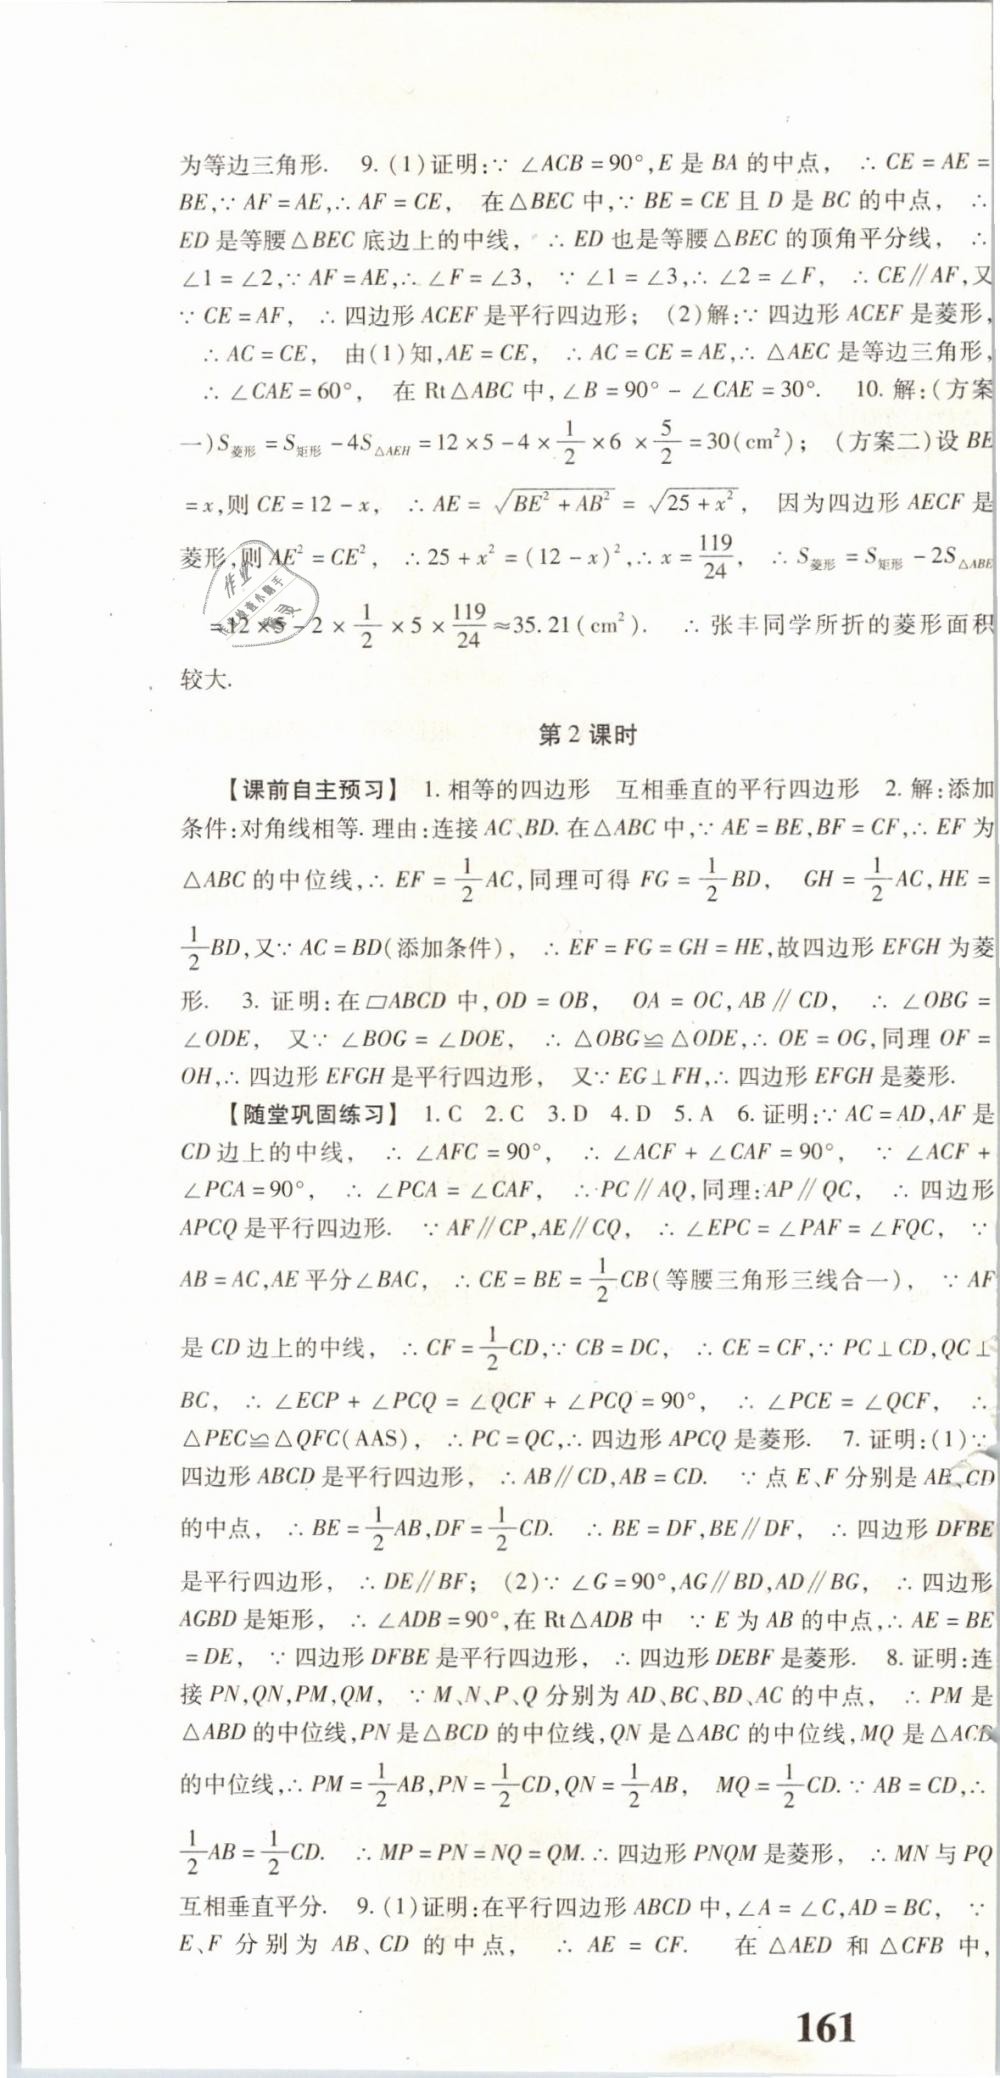 为等边三角形. 9. (1)证明:∵ ∠ACB=90°,E 是 BA 的中点, ∴ CE=AE=
BE,∵ AF=AE,∴ AF=CE, 在△BEC 中,∵ BE=CE 且 D 是 BC 的中点, ∴
ED 是等腰△BEC 底边上的中线, ∴ ED 也是等腰△BEC 的顶角平分线, ∴
∠1=∠2,∵ AF=AE,∴ ∠F=∠3, ∵ ∠1=∠3,∴ ∠2=∠F, ∴ CE∥AF,又
∵ CE=AF, ∴ 四边形 ACEF 是平行四边形; (2)解:∵ 四边形 ACEF 是菱形,
∴ AC=CE, 由(1)知,AE=CE, ∴ AC=CE=AE,∴ △AEC 是等边三角形,
∴ ∠CAE=60°, 在 Rt△ABC 中,∠B=90°-∠CAE=30°. 10. 解:(方案
一)S菱形=S矩形-4S△AEH=12×5-4×1/2×6×5/2=30(cm²); (方案二)设 BE
=x,则 CE=12-x, ∴ AE=√(BE²+AB²)=√(25+x²), 因为四边形 AECF 是
菱形,则 AE²=CE², ∴ 25+x²=(12-x)²,∴ x=119/24, ∴ S菱形=S矩形-2S△ABE
=12×5-2×1/2×5×119/24≈35.21(cm²). ∴ 张丰同学所折的菱形面积
较大.
第 2 课时
【课前自主预习】 1. 相等的四边形 互相垂直的平行四边形 2. 解:添加
条件:对角线相等. 理由:连接 AC、BD. 在△ABC 中,∵ AE=BE,BF=CF,∴ EF 为
△ABC 的中位线,∴ EF=1/2AC,同理可得 FG=1/2BD, GH=1/2AC,HE=
1/2BD,又∵ AC=BD(添加条件), ∴ EF=FG=GH=HE,故四边形 EFGH 为菱
形. 3. 证明:在▱ABCD 中,OD=OB, OA=OC,AB∥CD, ∴ ∠OBG=
∠ODE, 又∵ ∠BOG=∠DOE, ∴ △OBG≌△ODE,∴ OE=OG,同理 OF=
OH,∴ 四边形 EFGH 是平行四边形, 又∵ EG⊥FH,∴ 四边形 EFGH 是菱形.
【随堂巩固练习】 1. C 2. C 3. D 4. D 5. A 6. 证明:∵ AC=AD,AF 是
CD 边上的中线, ∴ ∠AFC=90°, ∴ ∠ACF+∠CAF=90°, ∵ ∠ACF+
∠PCA=90°, ∴ ∠PCA=∠CAF, ∴ PC∥AQ,同理:AP∥QC, ∴ 四边形
APCQ 是平行四边形. ∵ AF∥CP,AE∥CQ, ∴ ∠EPC=∠PAF=∠FQC, ∵
AB=AC,AE 平分∠BAC, ∴ CE=BE=1/2CB(等腰三角形三线合一), ∵ AF
是 CD 边上的中线, ∴ CF=1/2CD,∵ CB=DC, ∴ CE=CF,∵ PC⊥CD,QC⊥
BC, ∴ ∠ECP+∠PCQ=∠QCF+∠PCQ=90°, ∴ ∠PCE=∠QCF, ∴
△PEC≌△QFC(AAS), ∴ PC=QC,∴ 四边形 APCQ 是菱形. 7. 证明:(1)∵
四边形 ABCD 是平行四边形, ∴ AB∥CD,AB=CD. ∵ 点 E、F 分别是 AB、CD
的中点, ∴ BE=1/2AB,DF=1/2CD. ∴ BE=DF,BE∥DF, ∴ 四边形 DFBE
是平行四边形, ∴ DE∥BF; (2)∵ ∠G=90°,AG∥BD,AD∥BG, ∴ 四边形
AGBD 是矩形, ∴ ∠ADB=90°,在 Rt△ADB 中 ∵ E 为 AB 的中点,∴ AE=BE
=DE, ∵ 四边形 DFBE 是平行四边形, ∴ 四边形 DEBF 是菱形. 8. 证明:连
接 PN,QN,PM,QM, ∵ M、N、P、Q 分别为 AD、BC、BD、AC 的中点, ∴ PM 是
△ABD 的中位线,PN 是△BCD 的中位线,QN 是△ABC 的中位线,MQ 是△ACD
的中位线,∴ PM=1/2AB,PN=1/2CD,QN=1/2AB, MQ=1/2CD. ∵ AB=CD,∴
1/2AB=1/2CD. ∴ MP=PN=NQ=QM. ∴ 四边形 PNQM 是菱形, ∴ MN 与 PQ
互相垂直平分. 9. (1)证明:在平行四边形 ABCD 中,∠A=∠C,AD=BC, ∵
E、F 分别为 AB、CD 的中点, ∴ AE=CF. 在△AED 和△CFB 中,
161